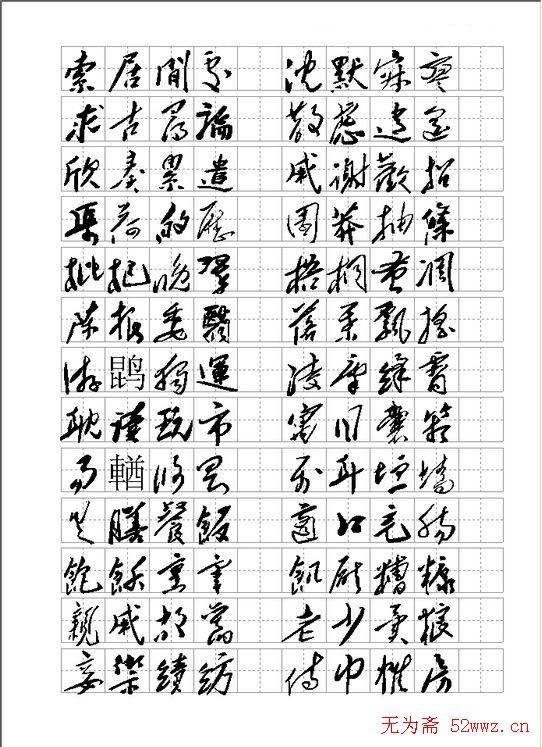 索居閒處 沈默寂寥
求古尋論 散慮逍遙
欣奏累遣 戚謝歡招
渠荷的歷 園莽抽條
枇杷晚翠 梧桐蚤凋
陳根委翳 落葉飄搖
游鹍獨運 凌摩絳霄
耽讀玩市 寓目囊箱
易輶攸畏 屬耳垣墻
具膳餐飯 適口充腸
飽飫烹宰 飢厭糟糠
親戚故舊 老少異糧
妾御績紡 侍巾帷房
无为斋 52wwz.cn